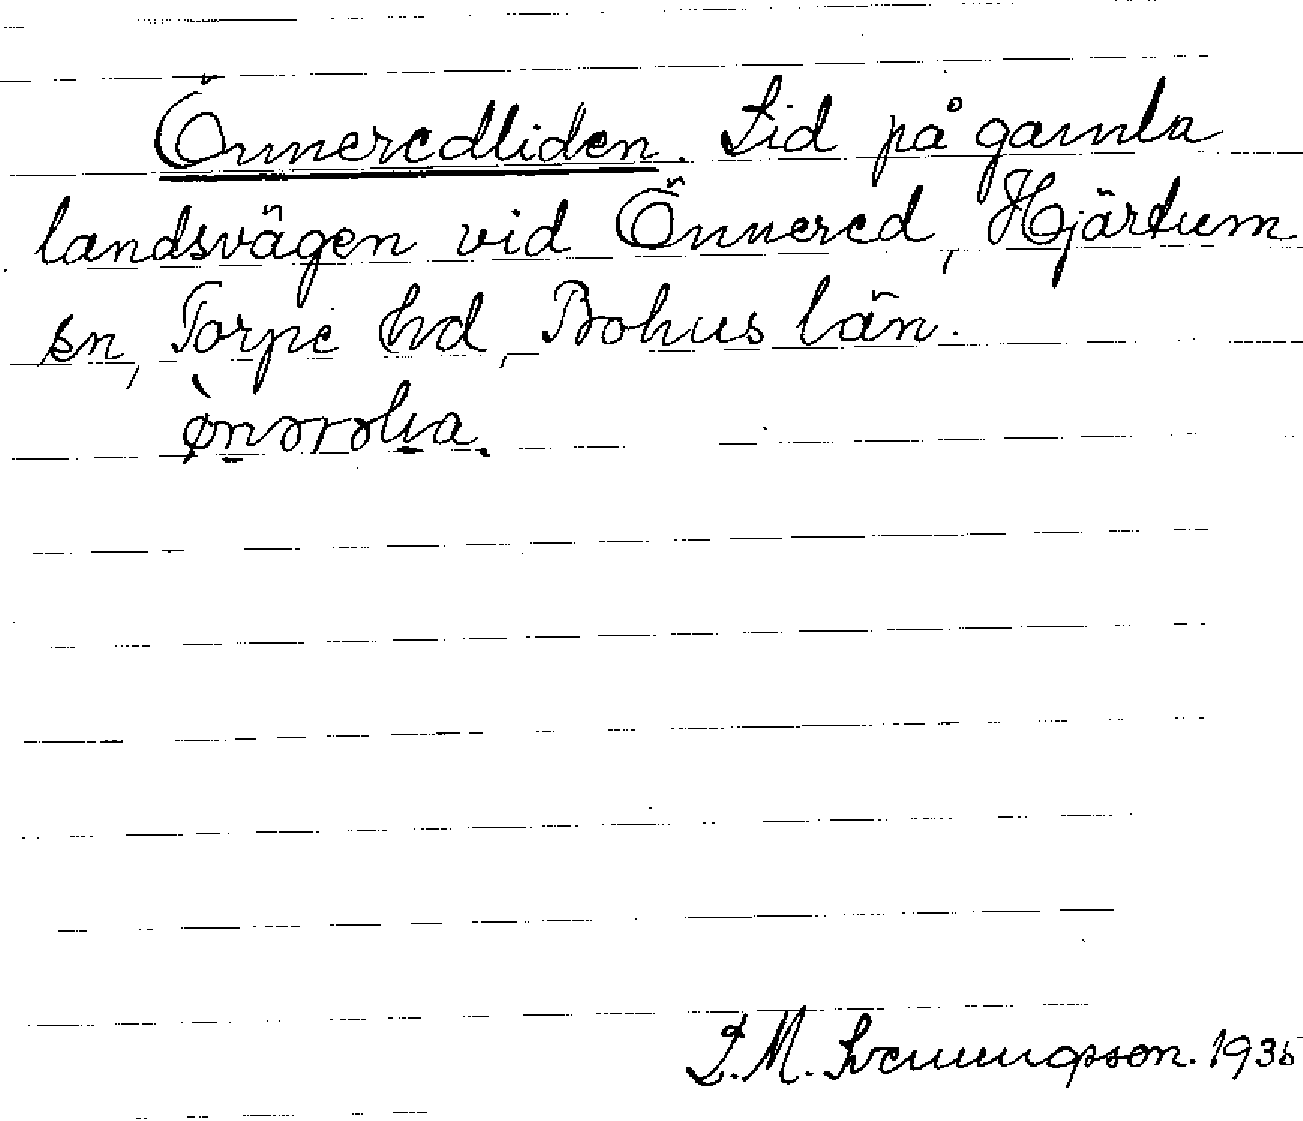 Önneredliden. Lid på gamla
landsvägen vid Önnered, Hjärtum
sn, Torpe hd, Bohus län.
S. M. Svenungsson. 1935